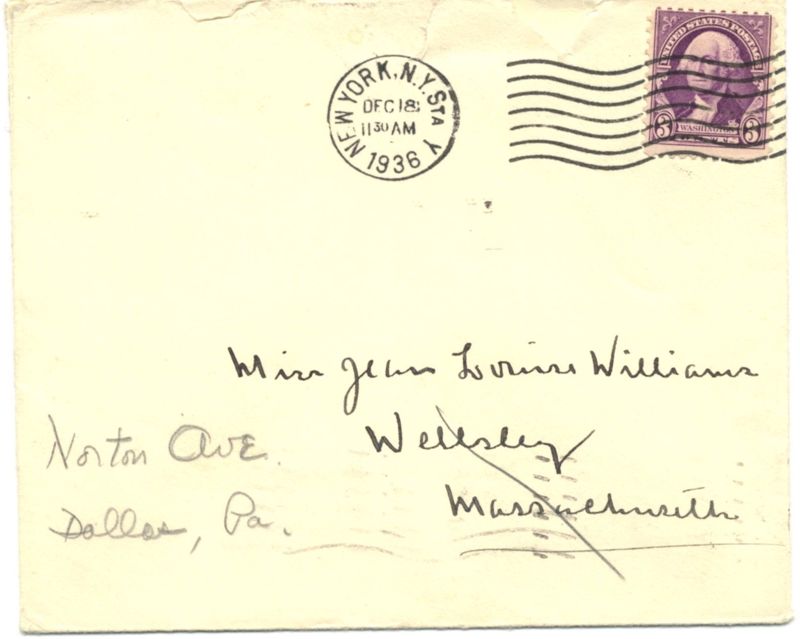 NEW YORK, N.Y. STA Y
DEC 18
11 30 AM
1936
UNITED STATES POSTAGE
3 WASHINGTON 3
Miss Jean Louise Williams
Wellsley
Massachusetts
Norton Ave.
Dallas, Pa.